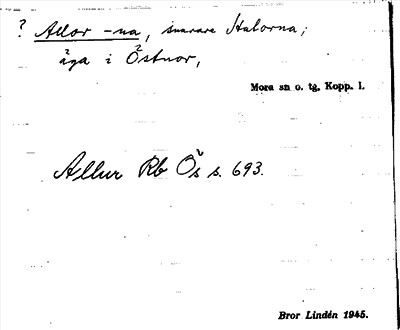 ? Allor -na, snarare Stulorna;
äga i Östnor,
Mora sn o. tg. Kopp. l.
Allur Rb Ös s. 693.
Bror Lindén 1945.